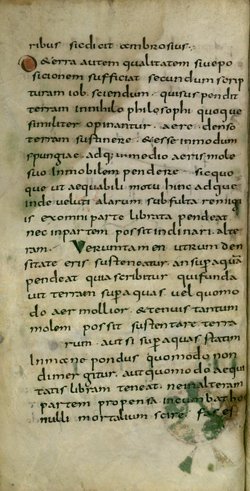 ribus sicdicit ambrosius
De terra autem qualitatem siue po
sicionem sufficiat secundum scrip
turam iob sciendum. quia suspendit
terram innihilo philosophi quoque
similiter opinantur. aere denso
terram sustinere. & esse in modum
spungiae. adque medio aeris mole
suo Inmobilem pendere. sicquo
que ut aequabili motu hinc adque
inde ueluti alarum subfulta remigi
is ex omni parte librata pendeat
nec inpartem possit indinari alte
ram. Veruntamen utrum den
sitate eris susteneatur an supaquam
pendeat quia scribitur quifunda
uit terram supaquas uel quomo
do aer mollior. & tenuis tantum
molem possit sustentare terra
rum. aut si supaquas statim
Inmane pondus quomodo non
dimergitur. aut quomodo aequi
tatis libram teneat. neinalteram
partem propensa incumbat. ho
nulli mortalium scire fas e